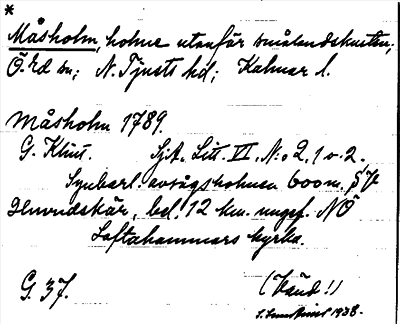 *
Måsholm, holme utanför smålandskusten;
Ö. hd sn; N. Tjusts hd; Kalmar l.
Måsholm 1789.
G. Klint. Sj.A. Litt. VI. N:o 2, 1 o. 2.
Synbarl. avsågs holmen 600 m. SV
Hmvidskär, bel. 12 km. ungef. NÖ
Loftahammars kyrka.
G. 37. (Känd!)
1938.